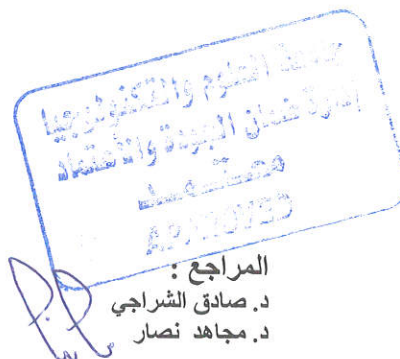 جامعة العلوم والتكنولوجيا
إدارة ضمان الجودة والاعتماد
معتمد
APPROVED
المراجع :
د. صادق الشراجي
د. مجاهد نصار